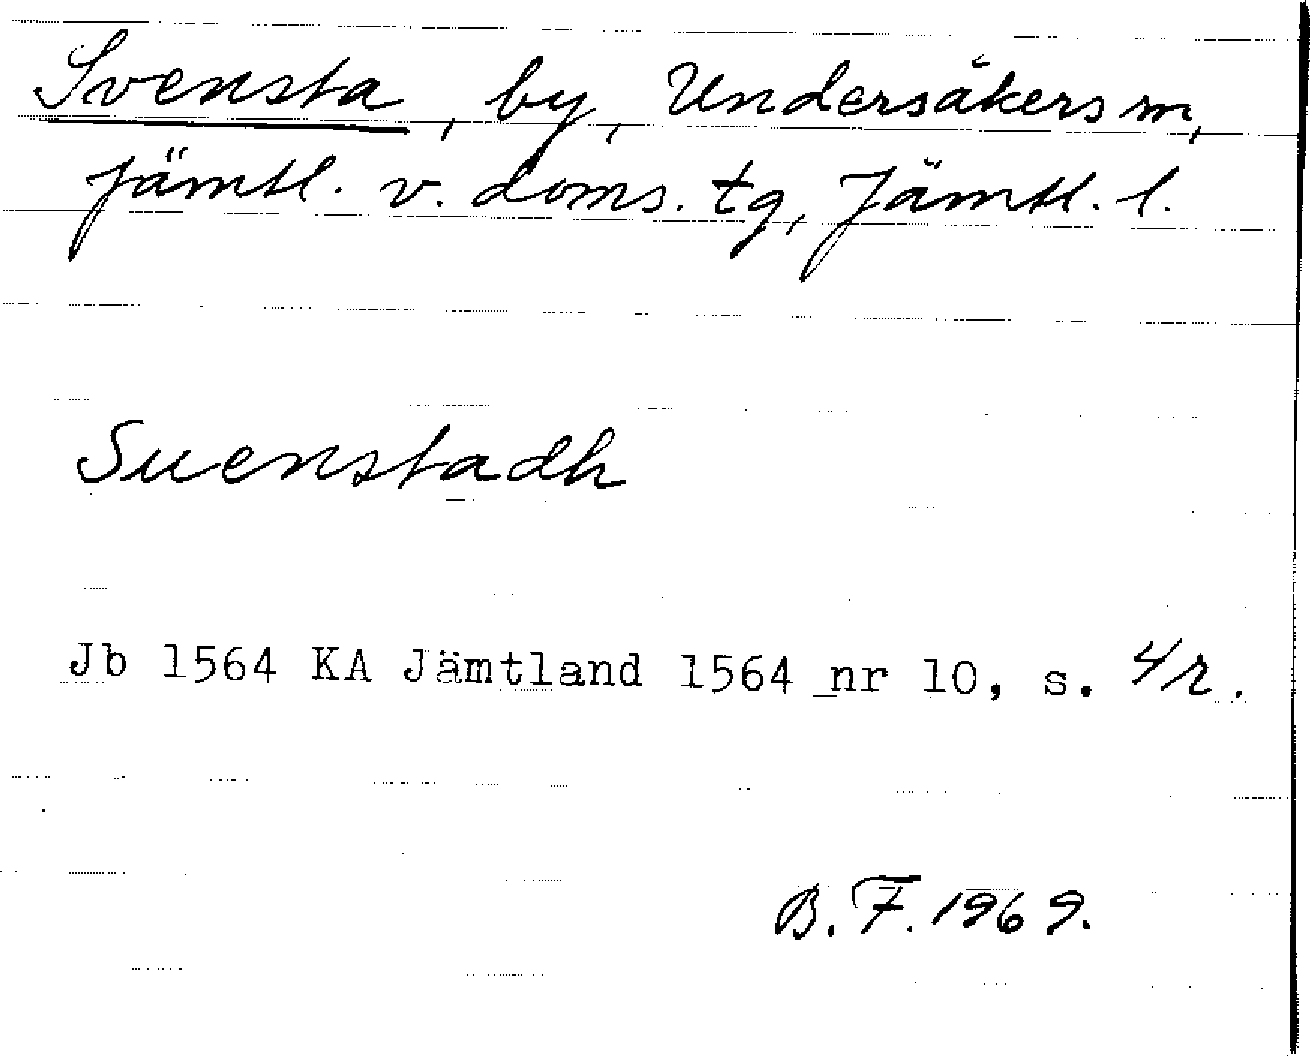 Svensta, by, Undersåkers sn,
Jämtl. v. doms. tg, Jämtl. l.
Suenstadh
Jb 1564 KA Jämtland 1564 nr 10, s. 4r.
B. F. 1969.